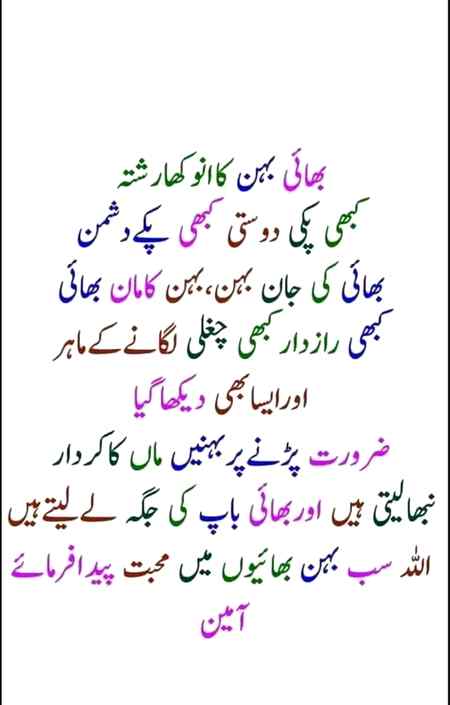 بھائی بہن کا انوکھا رشتہ
کبھی پکی دوستی کبھی پکے دشمن
بھائی کی جان بہن، بہن کا مان بھائی
کبھی رازدار کبھی چغلی لگانے کے ماہر
اور ایسا بھی دیکھا گیا
ضرورت پڑنے پر بہنیں ماں کا کردار
نبھا لیتی ہیں اور بھائی باپ کی جگہ لے لیتے ہیں
اللہ سب بہن بھائیوں میں محبت پیدا فرمائے
آمین